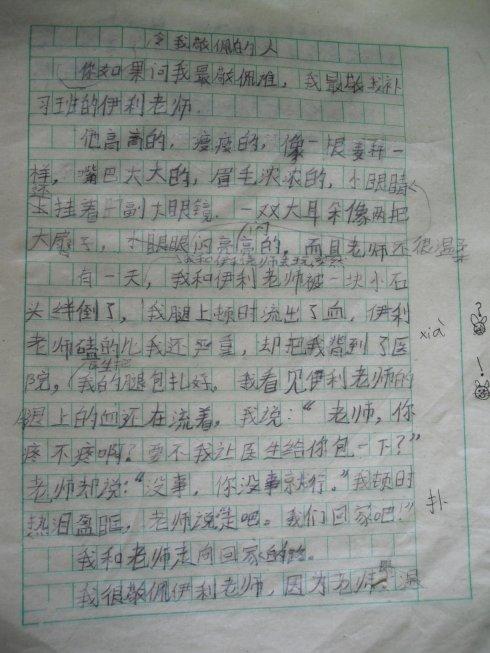 令我敬佩的个人
你如果问我最敬佩谁，我最敬我补
习班的伊利老师.
他高高的，瘦瘦的，像一根麦秆一
样，嘴巴大大的，眉毛浓浓的，小眼睛
上还挂着一副大眼镜.一双大耳朵像两把
大扇子，小眼眼闪亮亮的，而且老师还很温柔
有一天，我和伊利老师被一块小石
头绊倒了，我腿上顿时流出了血，伊利
xià
老师磕的比我还严重，却把我背到了医
院，医生把我的腿包扎好。我看见伊利老师的
腿上的血还在流着，我说：“老师，你
疼不疼啊？要不我让医生给你包一下？”
老师却说：“没事，你没事就行。”我顿时
扑
热泪盈眶，老师说走吧。我们回家吧！”
我和老师走向回家的路。
我很敬佩伊利老师，因为老师是温